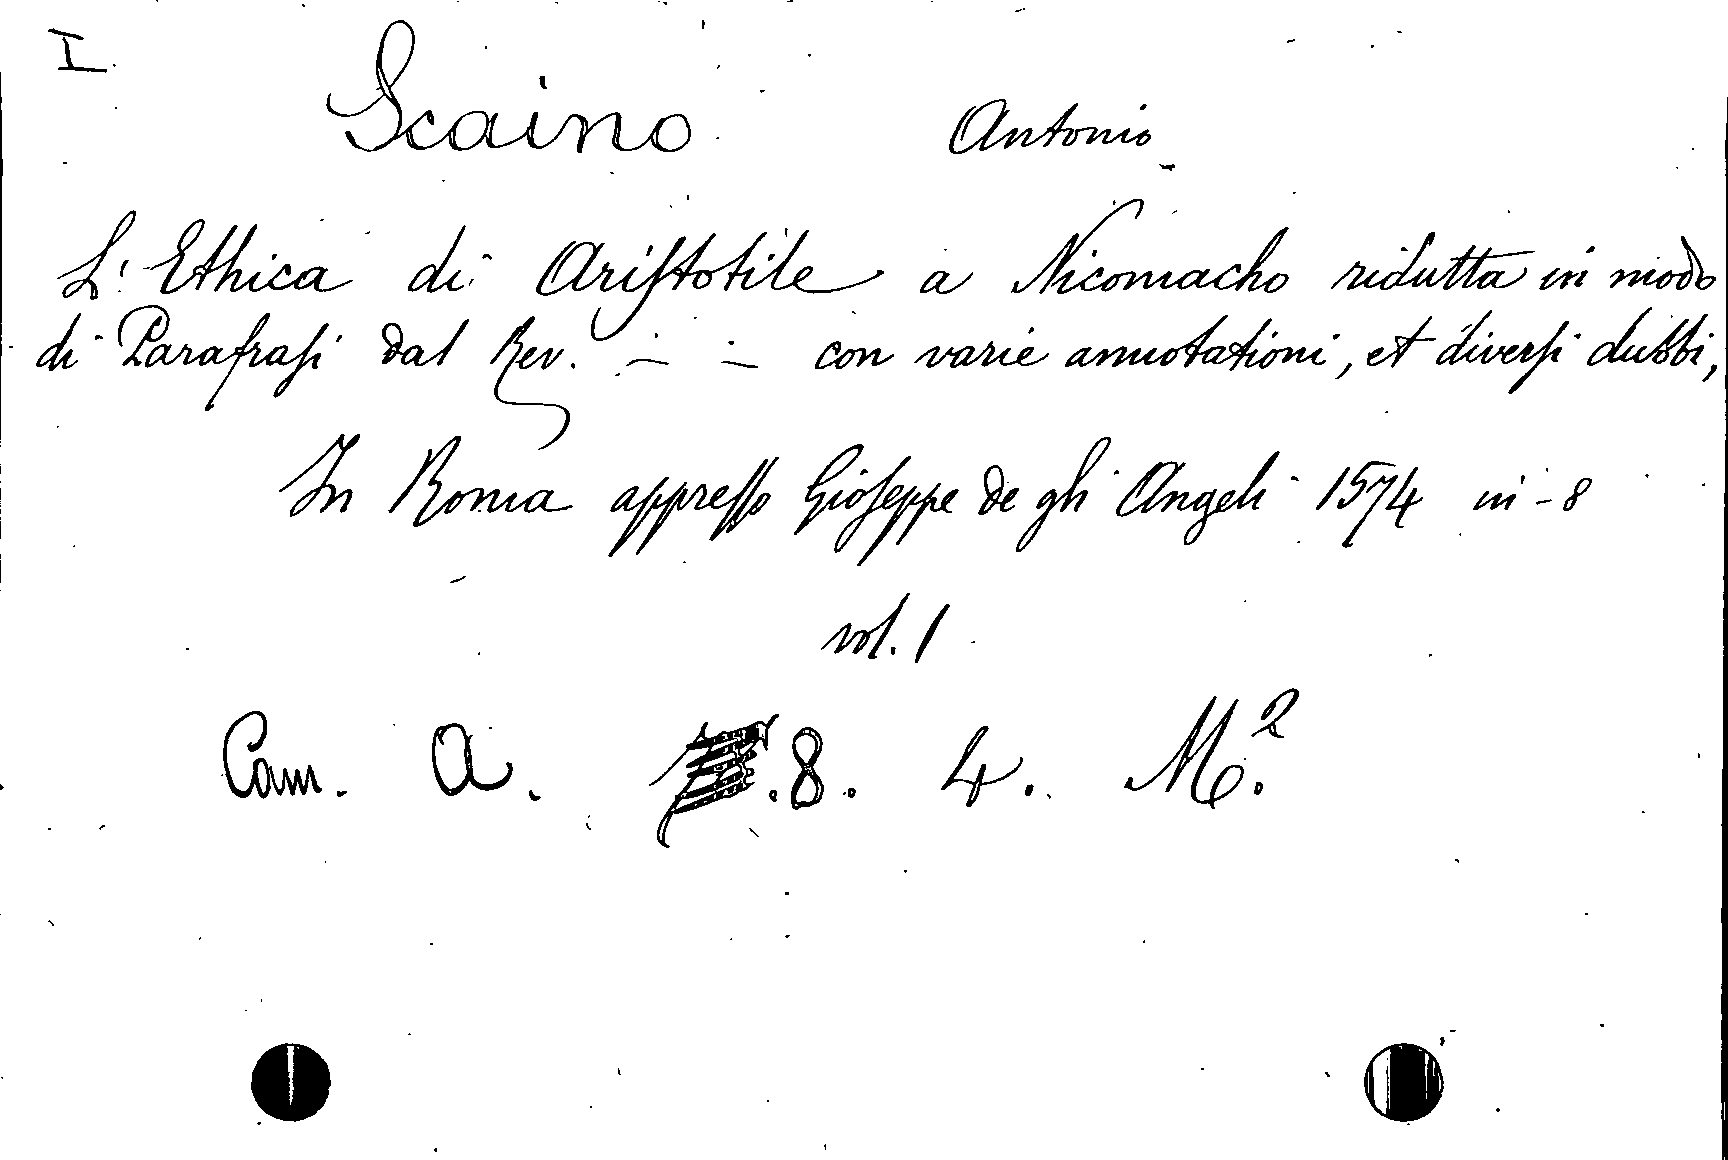 I
Scaino Antonio
L'Ethica di Ariſtotile a Nicomacho ridutta in modo
di Parafraſi dal Rev. — — con varie annotationi, et diverſi dubbi,
In Roma appreſſo Gioſeppe de gli Angeli 1574 in-8
vol. 1
Cam. A. .8. 4. M.²